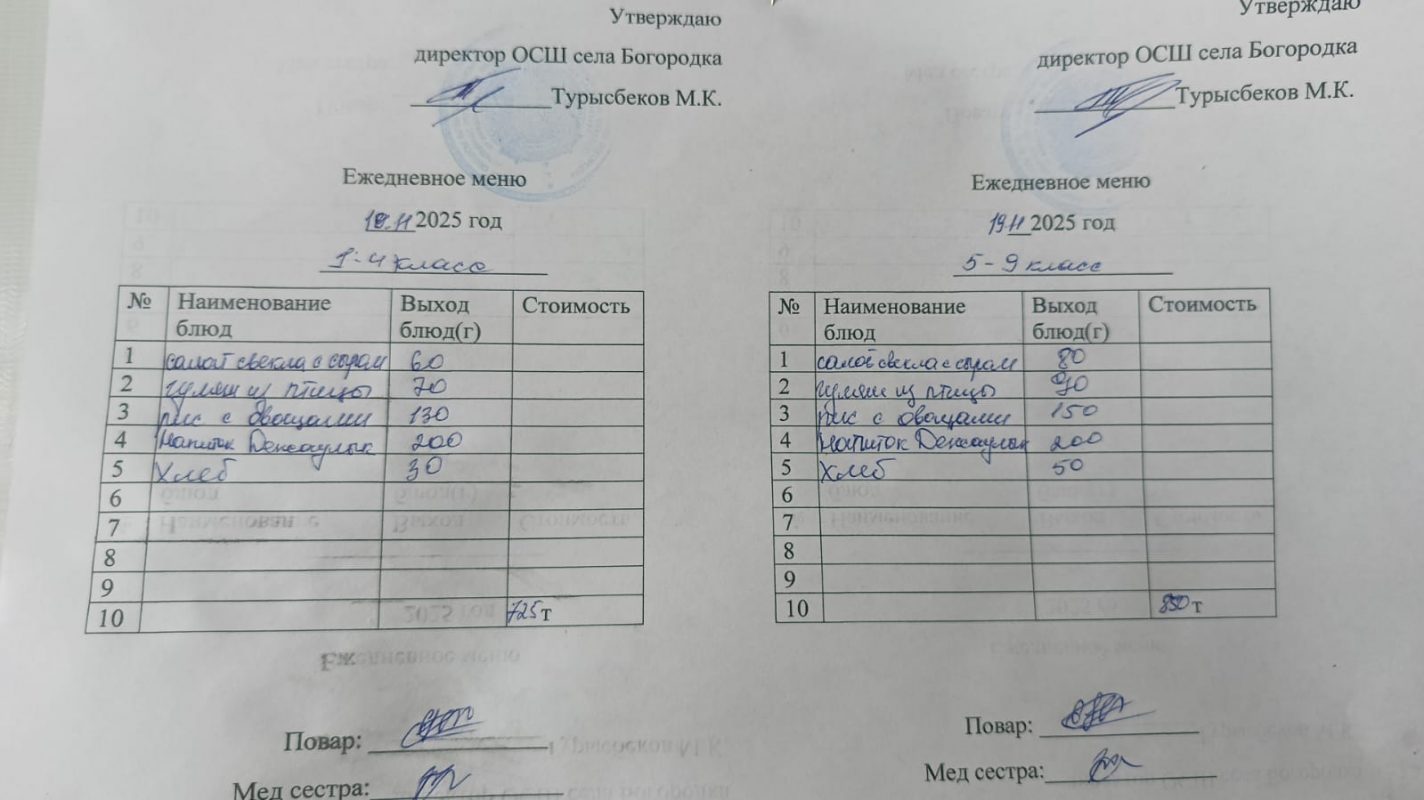 Утверждаю
директор ОСШ села Богородка
Турысбеков М.К.
Ежедневное меню
19.11 2025 год
1-4 класс
№ Наименование блюд Выход блюд(г) Стоимость
1 салат свекла с сыром 60
2 гуляш из птицы 70
3 рис с овощами 130
4 Напиток Денсаулык 200
5 Хлеб 30
6
7
8
9
10 725 т
Повар:
Мед сестра:
Утверждаю
директор ОСШ села Богородка
Турысбеков М.К.
Ежедневное меню
19.11 2025 год
5-9 класс
№ Наименование блюд Выход блюд(г) Стоимость
1 салат свекла с сыром 80
2 гуляш из птицы 90
3 рис с овощами 150
4 Напиток Денсаулык 200
5 Хлеб 50
6
7
8
9
10 850 т
Повар:
Мед сестра: